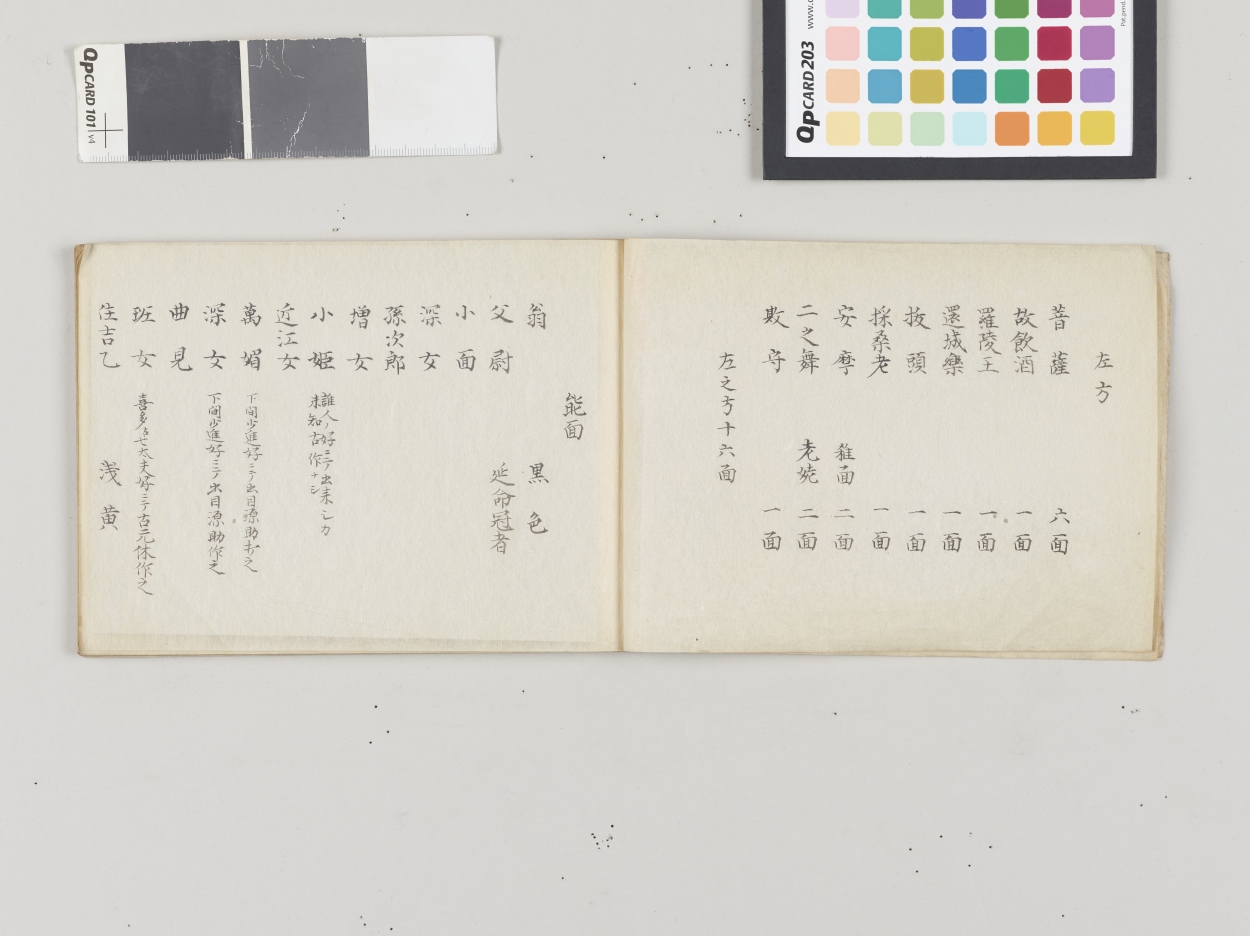 左方
菩薩 六面
故飲酒 一面
羅陵王 一面
還城樂 一面
抜頭 一面
採桑老 一面
安摩 雑面 二面
二之舞 老婄 二面
散守 一面
左之方十六面
能面
翁 黒色
父尉 延命冠者
小面
深女
孫次郎
増女
小姫 誰人ノ好ミテ出来シカ
未知古作ナシ
近江女
萬媚 下間少進好ミテ出目源助打之
深女 下間少進好ミテ出目源助作之
曲見
班女 喜多古七太夫好ミテ古元休作之
住吉乙 浅黄
QPCARD 101 v4
QPCARD 203
www.
Pat.pend.